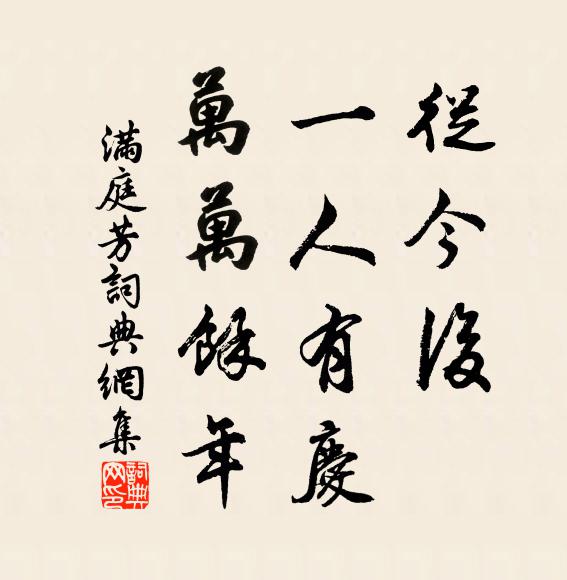 從今後
一人有慶
萬萬餘年
滿庭芳詞典網集
詞典網印